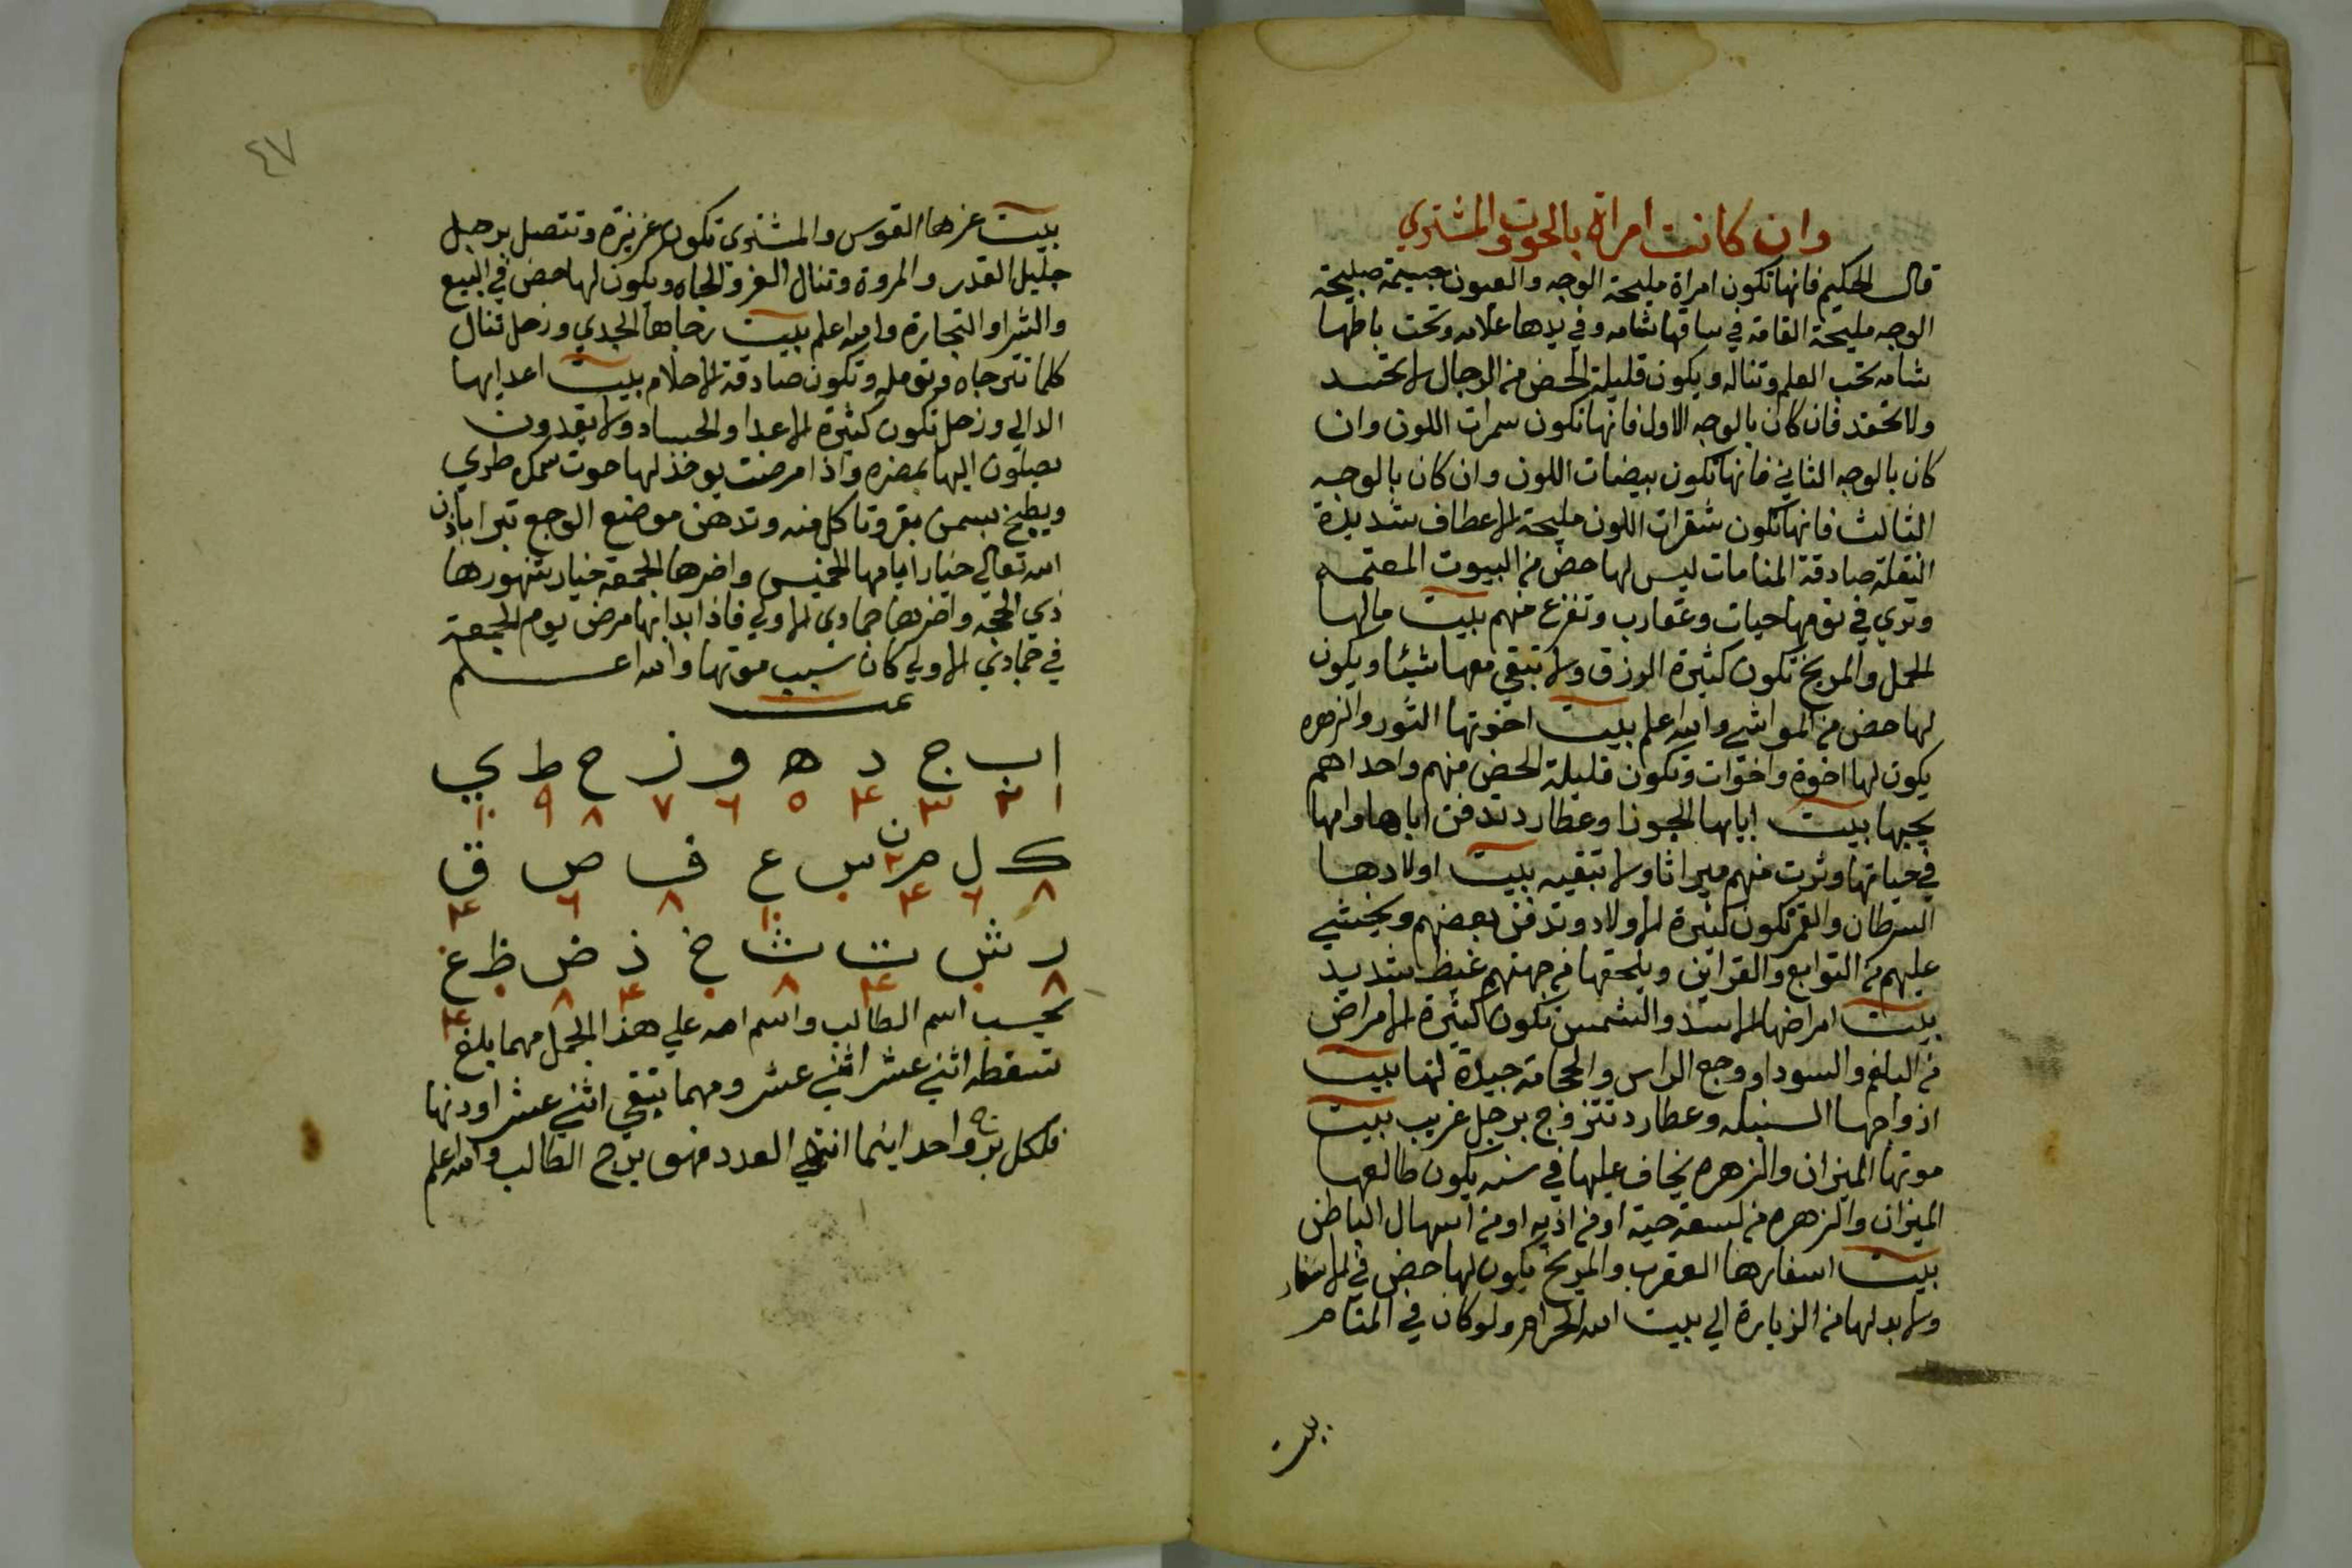 وان كانت امراة بالحوت والمشتري
قال الحكيم فانها تكون امراة مليحة الوجه والعيون جسيمة صبيحة
الوجه مليحة القامة في ساقها شامه وفي يدها علامه وتحت باطها
شامه تحب العلم وتناله ويكون قليلة الحض من الرجال لا تحسد
ولا تحقد فان كان بالوجه الاول فانها تكون سمرات اللون وان
كان بالوجه الثاني فانها تكون بيضات اللون وان كان بالوجه
الثالث فانها تكون شقرات اللون مليحة الاعطاف شديدة
النقلة صادقة المنامات ليس لها حض من البيوت المعتمه
وتري في نومها حيات وعقارب وتفزع منهم بيت مالها
الحمل والمريخ تكون كثيرة الرزق ولا تبقي معها شيئا ويكون
لها حض من المواشي والله اعلم بيت اخوتها الثور والزهره
يكون لها اخوة واخوات وتكون قليلة الحض منهم واحداهم
يحبها بيت ابايها الجوزا وعطارد تدفن اباها وامها
في حياتها وترث منهم ميراثا ولا تبقيه بيت اولادها
السرطان والقمر تكون كثيرة الاولاد وتدفن بعضهم ويخشي
عليهم من التوابع والقراين ويلحقها من جهتهم غيظ شديد
بيت امراضها الاسد والشمس تكون كثيرة الامراض
من البلغم والسودا ووجع الراس والحجامة جيدة لها بيت
ازواجها السنبله وعطارد تتزوج برجل غريب بيت
موتها الميزان والزهره يخاف عليها في سنه يكون طالعها
الميزان والزهره من لسعة حية او من اذيه او من اسهال الباطن
بيت اسفارها العقرب والمريخ يكون لها حض في الاسفار
ولا بد لها من الزيارة الي بيت الله الحرام ولو كان في المنام
بيت
٤٧
بيت عزها القوس والمشتري تكون عزيزة وتتصل برجل
جليل القدر والمروة وتنال العز والجاه ويكون لها حض في البيع
والشرا والتجارة والله اعلم بيت رجاها الجدي وزحل تنال
كلما تترجاه وتومله وتكون صادقة الاحلام بيت اعدايها
الدالي وزحل تكون كثيرة الاعدا والحساد ولا يقدرون
يصلون اليها بمضره واذا مرضت يوخذ لها حوت سمك طري
ويطبخ بسمن بقر وتاكل منه وتدهن موضع الوجع تبرا باذن
الله تعالي خيار ايامها الخميس واضرها الجمعة خيار شهورها
ذي الحجه واضرها جمادي الاولي فاذا بدا بها مرض يوم الجمعة
في جمادي الاولي كان سبب موتها والله اعلم
تمت
ا ب ج د ه و ز ح ط ي
١ ٢ ٣ ٤ ٥ ٦ ٧ ٨ ٩ ١٠
ك ل م ن س ع ف ص ق
٨ ٦ ٤ ٢ ٠ ١٠ ٨ ٦ ٤
ر ش ت ث خ ذ ض ظ غ
٨ ٠ ٤ ٨ ٠ ٤ ٨ ٠ ٤
تحسب اسم الطالب واسم امه علي هذا الجمل مهما بلغ
تسقطه اثني عشر اثني عشر ومهما يتبقي اثني عشر او دنها
فلكل برج واحد اينما انتهي العدد فهو برج الطالب والله اعلم